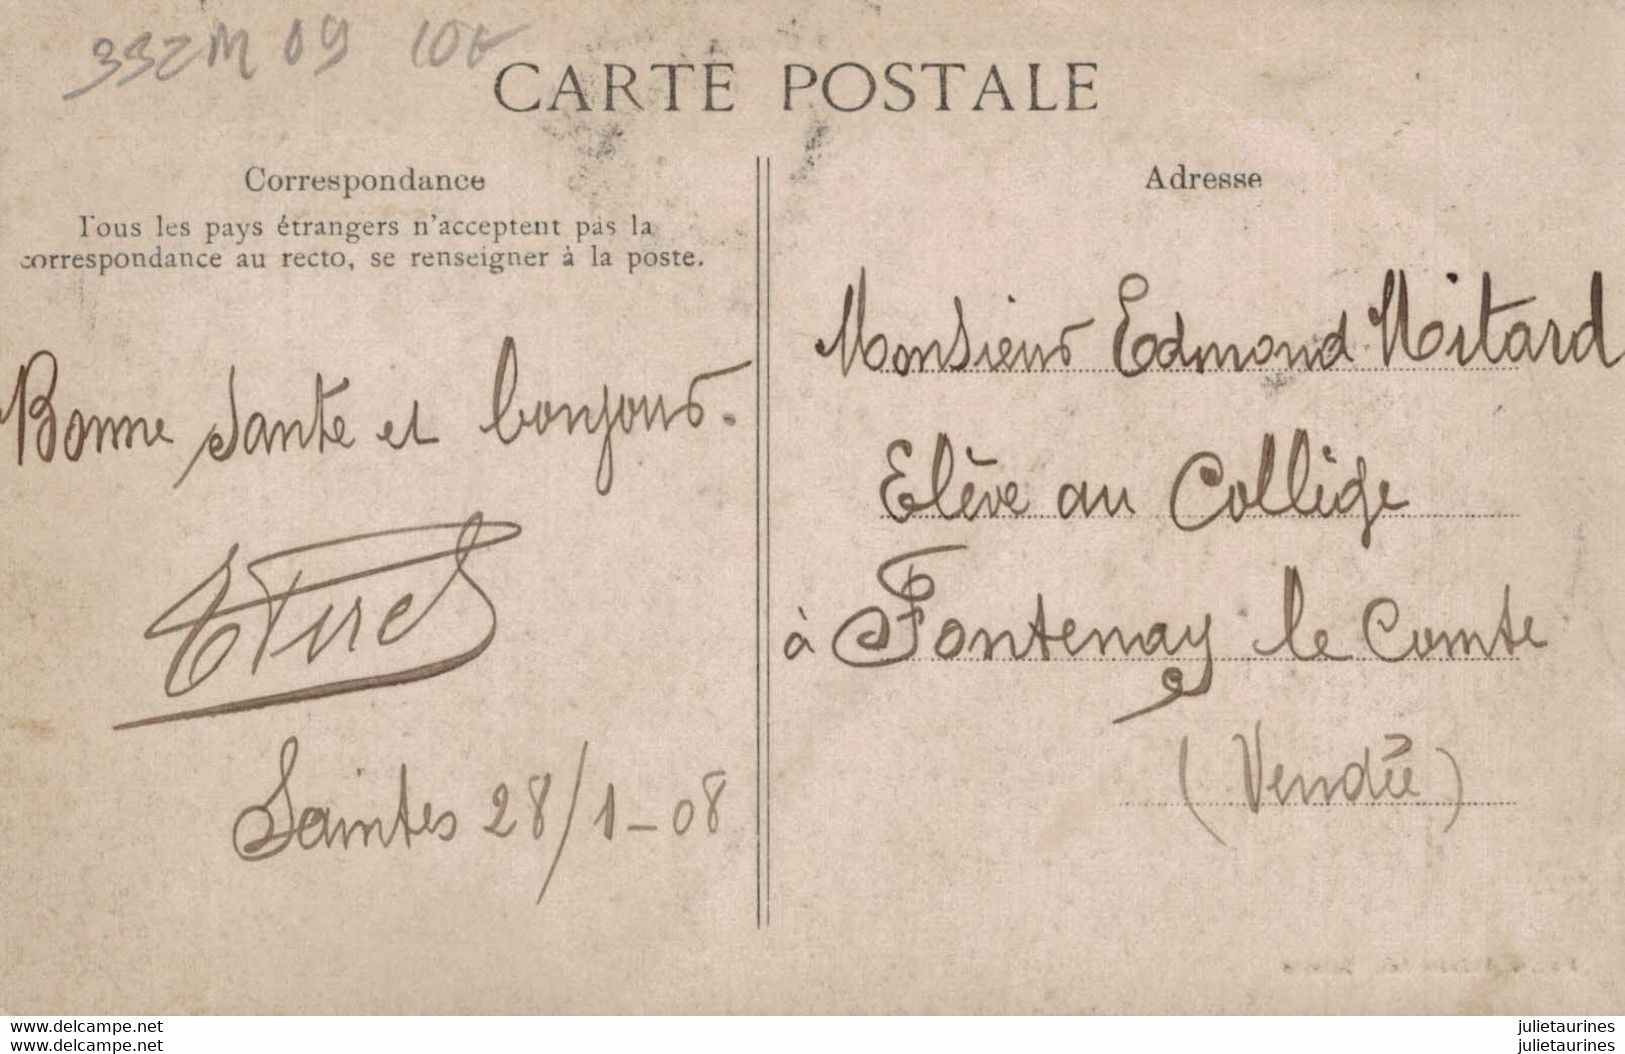 CARTE POSTALE
Correspondance
Tous les pays étrangers n'acceptent pas la
correspondance au recto, se renseigner à la poste.
Bonne Santé et bonjour.
Saintes 28/1-08
Adresse
Monsieur Edmond Mitard
Elève au Collège
à Fontenay le Comte
(Vendée)
www.delcampe.net
www.delcampe.net
julietaurines
julietaurines